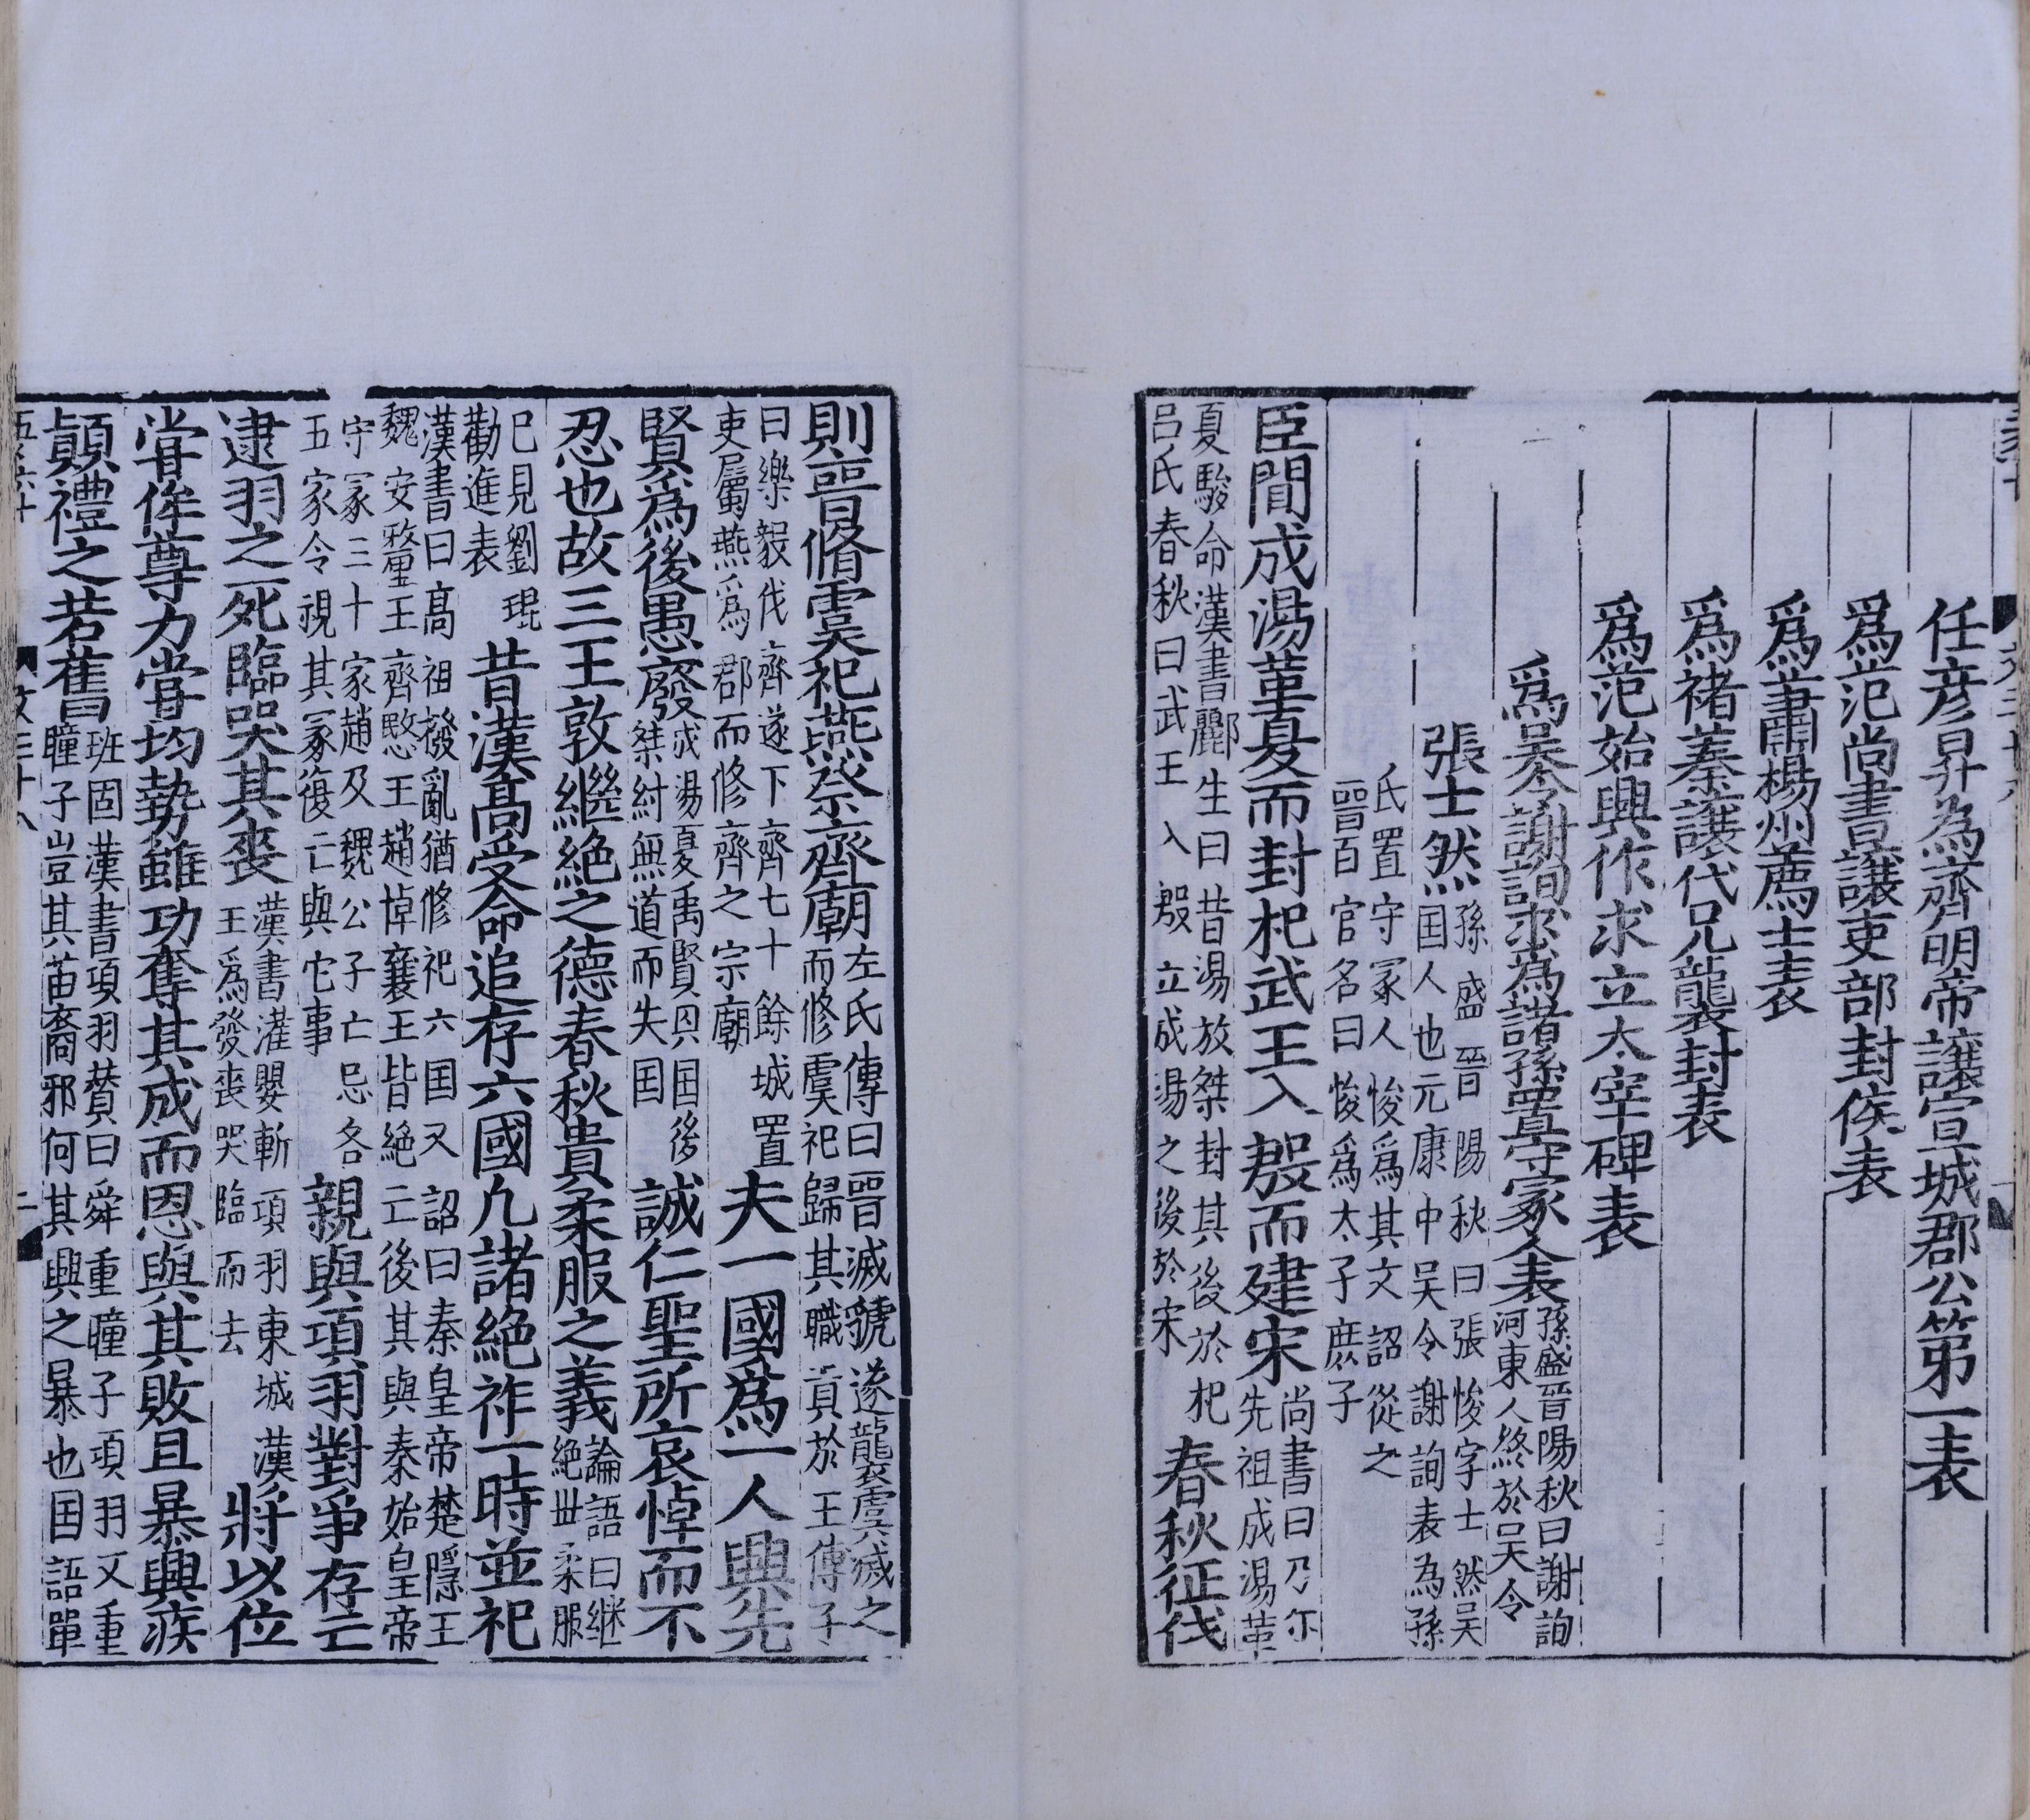 任彦昇為齊明帝讓宣城郡公第一表
爲范尚書讓吏部封侯表
爲蕭楊州薦士表
爲褚蓁讓代兄襲封表
爲范始興作求立太宰碑表
爲吴令謝詢求為諸孫置守冢人表
孫盛晉陽秋曰謝詢
河東人終於吴令
張士然
孫盛晉陽秋曰張悛字士然吴
国人也元康中吴令謝詢表為孫
氏置守冢人悛爲其文詔從之
晉百官名曰悛爲太子庶子
臣聞成湯革夏而封杞武王入殷而建宋
尚書曰乃尓
先祖成湯革
夏駿命漢書酈生曰昔湯放桀封其後於杞
吕氏春秋曰武王入殷立成湯之後於宋
春秋征伐
則晉脩虞祀燕祭齊廟
左氏傳曰晉滅虢遂襲虞滅之
而修虞祀歸其職貢於王傳子
曰樂毅伐齊遂下齊七十餘城置
吏屬燕爲郡而修齊之宗廟
夫一國爲一人興先
賢爲後愚廢
成湯夏禹賢㒷国後
桀紂無道而失国
誠仁聖所哀悼而不
忍也故三王敦繼絶之德春秋貴柔服之義
論語曰继
絶丗柔服
已見劉琨
勸進表
昔漢髙受命追存六國凢諸絶祚一時並祀
漢書曰髙祖撥亂猶修祀六国又詔曰秦皇帝楚隱王
魏安釐王齊愍王趙悼襄王皆絶亡後其與秦始皇帝
守冢三十家趙及魏公子亡忌各
五家令視其冢復亡與它事
親與項羽對爭存亡
逮羽之死臨哭其喪
漢書灌嬰斬項羽東城漢
王爲發喪哭臨而去
將以位
甞侔尊力甞均勢雖功奪其成而恩與其敗且暴興疾
顛禮之若舊
班固漢書項羽賛曰舜重瞳子項羽又重
瞳子豈其苗裔邪何其興之暴也国語單
文三十八
二